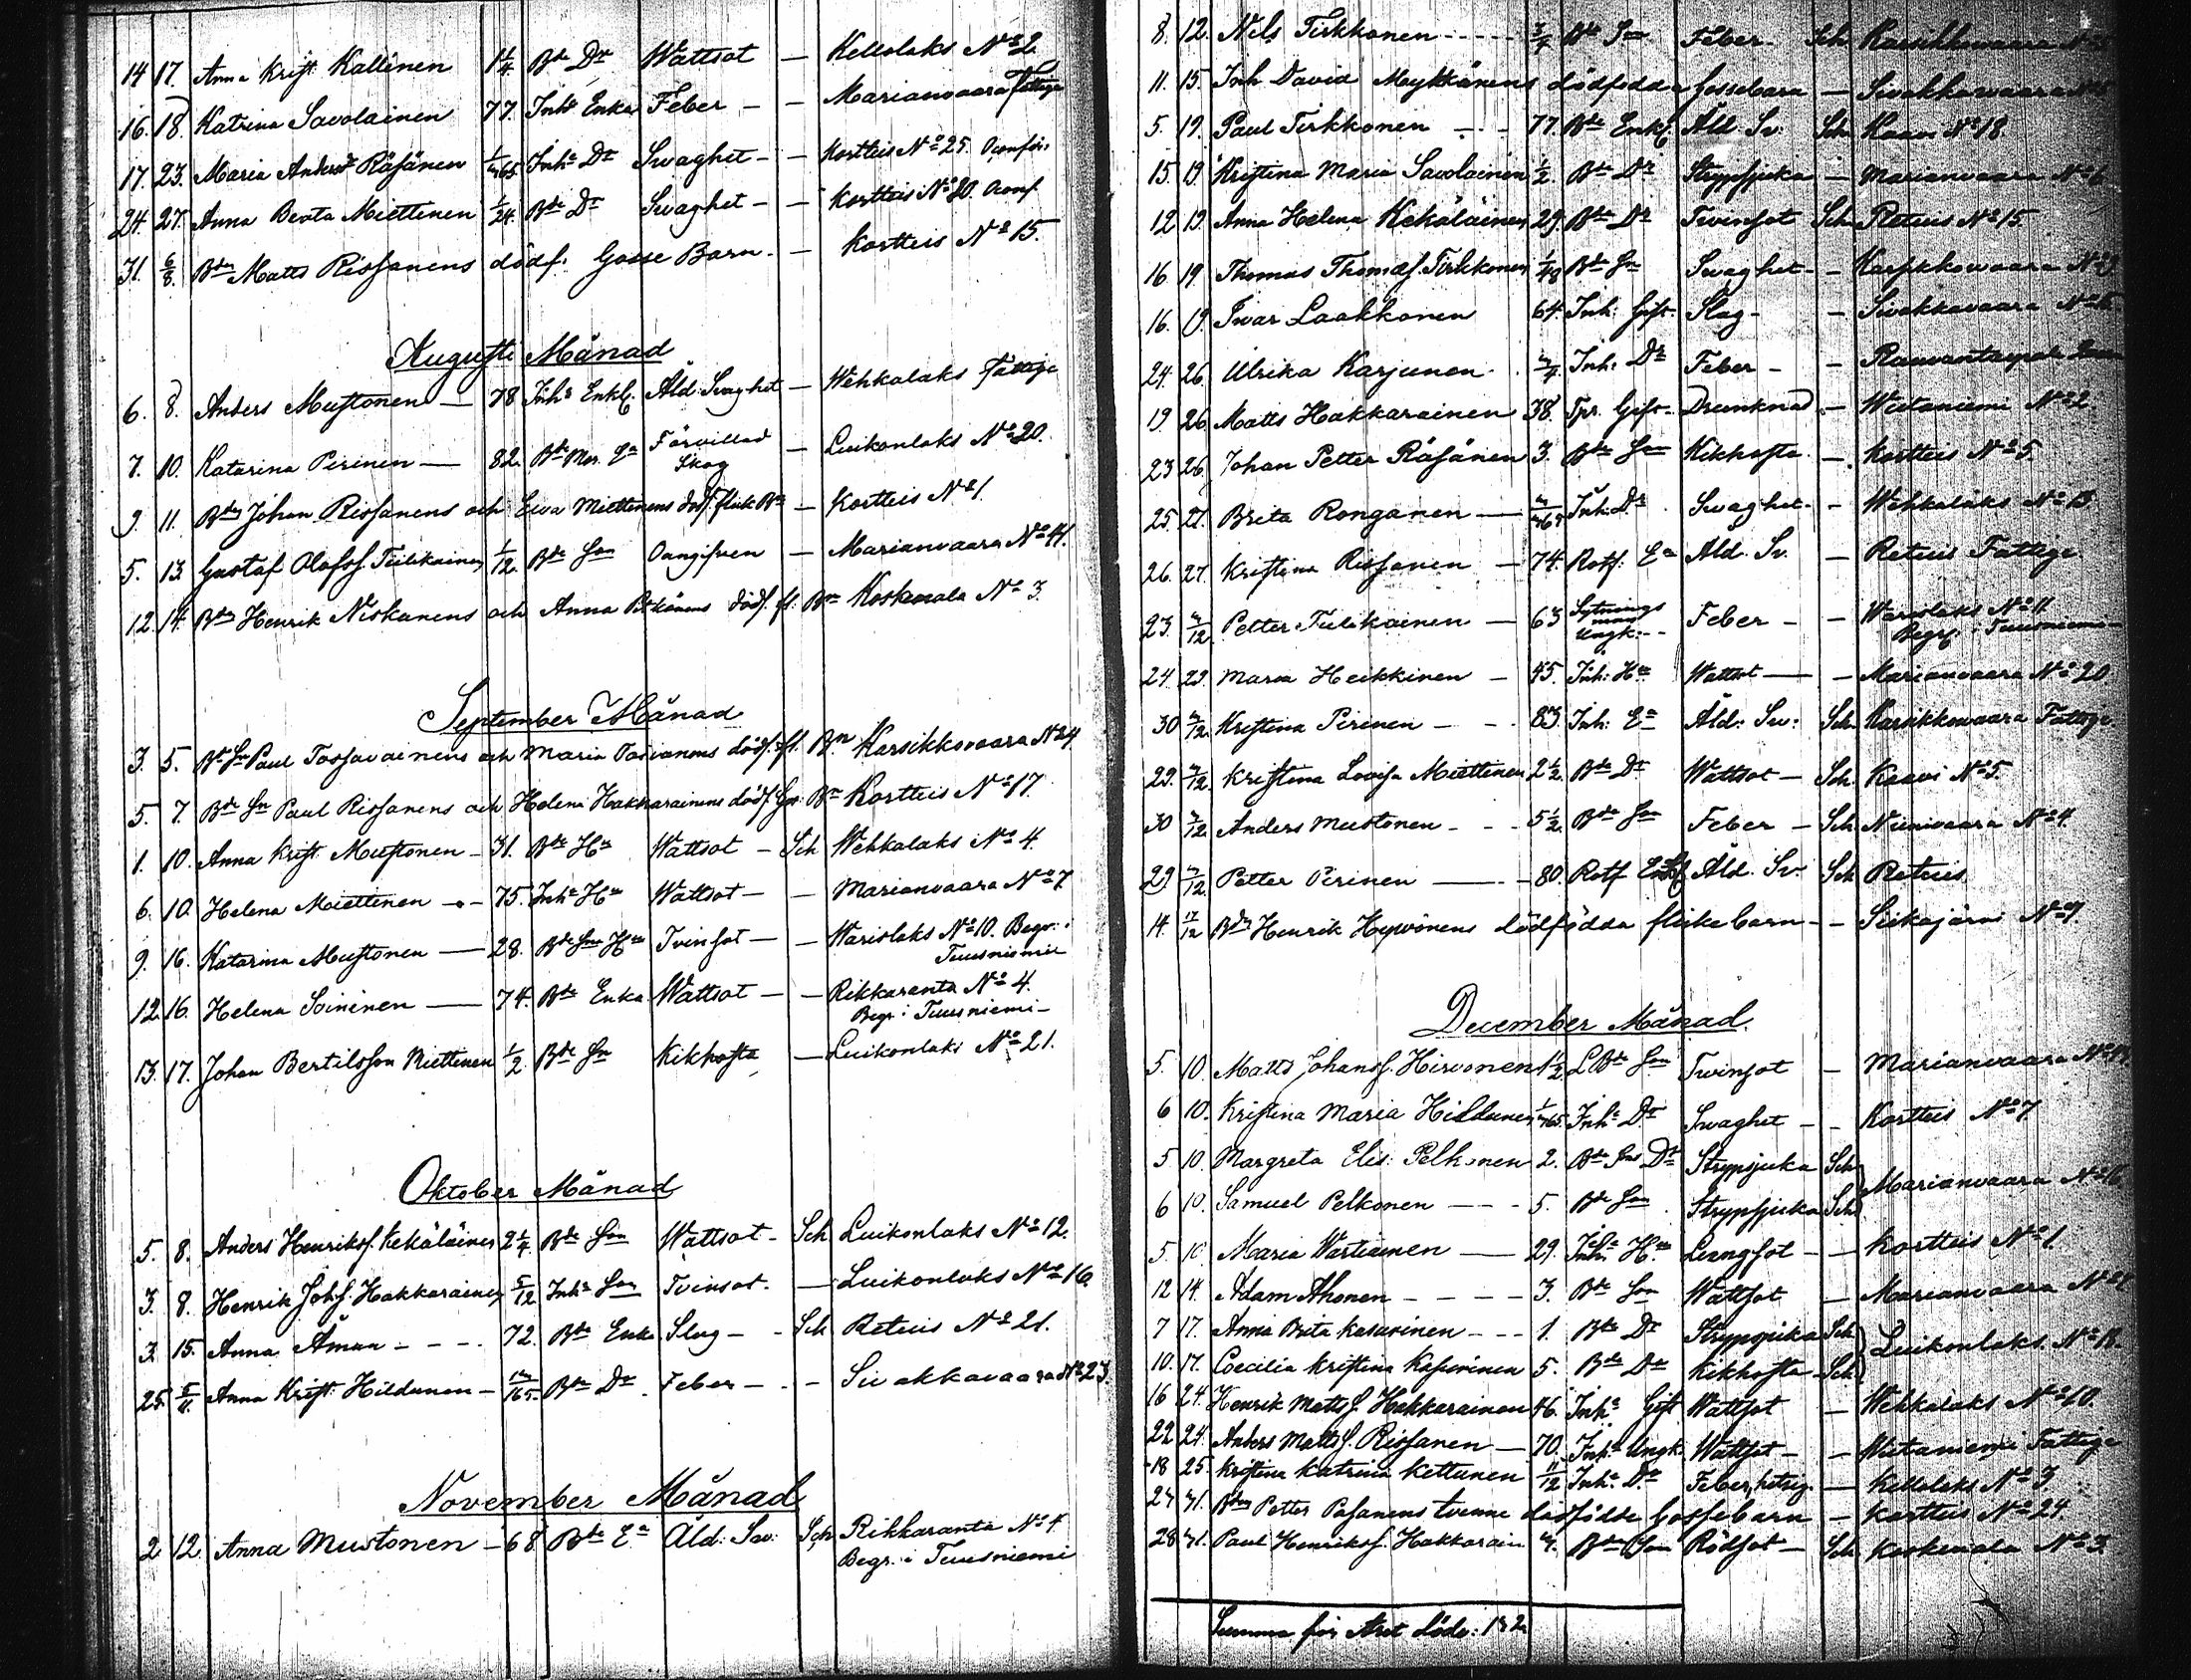 14 17. Anna Krist. Kallinen 1 1/4 Bde Dr Wattsot — Kellolaks No 2
16. 18. Katrina Savolainen 77. Inhs Enka Feber — — Marianvaara Fattige
17. 23. Maria Andersd. Räsänen 1/365 Inhs Dr Swaghet — — Kortteis No 25. Oconfir.
24. 27. Anna Beata Miettinen 1/24. Bde Dr Swaghet — — Kortteis No 20. Oconf.
31. 6/8. Bdn Matts Rissanens dödf. Gosse Barn. — Kortteis No 15.
Augusti Månad
6. 8. Anders Mustonen — 78 Inhs Enkl. Åld. Swaghet — Wehkalaks Fattige
7. 10. Katarina Pirinen — 82. Bde Mor. Ea Förvillad — Luikonlaks No 20.
Skog
9. 11. Bdn Johan Rissanens och Eva Miettinens dödf. flick Bn — Kortteis No 1.
5. 13. Gustaf Olofss. Tiilikainen 1/12. Bde Son Oangifven — Marianvaara No 41.
12. 14. Bdn Henrik Niskanens och Anna Pitkänens dödf. fl: Bn Koskenala No 3.
September Månad
3. 5. Bde Sn Paul Tossavainens och Maria dödf. fl. Bn Karsikkovaara No 24
5. 7. Bde Sn Paul Rissanens och Helena Hakkarainens dödf. Gos: Bn Kortteis No 17.
1. 10. Anna Krist. Mustonen — 31. Bde Hu Wattsot — Sch Wehkalaks No 4.
6. 10. Helena Miettinen — 75. Inhs Hu Wattsot — — Marianvaara No 7
9. 16. Katarina Mustonen — 28. Bde Sns Hu Tvinsot — — Warislaks No 10. Begr: i
Tuusniemi
12. 16. Helena Soininen — 74. Bde Enka Wattsot — — Rikkaranta No 4.
Begr: i Tuusniemi —
13. 17. Johan Bertilsson Miettinen 1/2 Bde Sn Kikhosta — Luikonlaks No 21.
Oktober Månad
5. 8. Anders Henrikss. Kekäläinen 2 1/4 Bde Son Wattsot — Sch Luikonlaks No 12.
3. 8. Henrik Johss. Hakkarainen 5/12 Inhs Son Tvinsot. — Luikonlaks No 16.
3. 15. Anna Åman — — — 72. Bde Enka Slag — Sch Retuis No 21.
25. 5/11. Anna Krist. Hildunen — Bde Dr Feber — — Sivakkavaara No 23.
November Månad
2 12. Anna Mustonen — 68 Bde Ea Åld: Sv: Sch Rikkaranta No 4
Begr: i Tuusniemi
8. 12. Nils Tirkkonen — — — 3/4 Bde Son Feber. Sch Karsikkovaara
11. 15. Inh David Mykkänens dödfödda gossebarn — Sivakkavaara
5. 19. Paul Tirkkonen — — 77. Bde Enkl. Åld. Sv. Sch. Kaavi No 18.
15. 19. Kristina Maria Savolainen 1/2. Bde Dr Strypsjuka — Marianvaara No 6
12 19. Anna Helena Kekäläinen 29. Bde Dr Tvinsot Sch. Retuis No 15.
16. 19. Thomas Thomass. Tirkkonen 1/48 Bde Sn Swaghet — Karsikkovaara
16. 19. Ivar Laakkonen 64. Inh: Gift. Slag — — Sivakkavaara
24. 26. Ulrika Karjunen. Inh: Dr Feber — — Raivantaipale
19 26. Matts Hakkarainen 38. Tpr. Gift. Drunknad — Wiitaniemi No 2.
23 26. Johan Petter Räsänen 3. Bde Son Kikhosta — Kortteis No 5
25. 27. Brita Ronganen — Inh: Dr Swaghet. — Wehkalaks No 13.
26. 27. Kristina Rissanen — 74. Rotf. Ea Åld. Sv. — Retuis Fattige
23. 3/12. Petter Tiilikainen — 63 Sytnings Feber — — Warislaks No 11
man Begr: i Tuusniemi
Ungk: —
24. 29. Maria Heikkinen — 45. Inh: Hu Wattsot — — Marianvaara No 20
30 3/12 Kristina Pirinen — — 83. Inh: Ea Åld: Sv: Sch Karsikkovaara Fattige
29. 3/12. Kristina Lovisa Miettinen 2 1/2. Bde Dr Wattsot — Sch. Kaavi No 5.
30 3/12. Anders Mustonen — — 5 1/2. Bde Son Feber — Sch Niinivaara No 4.
29 3/12 Petter Pirinen — 80. Rotf Enkl Åld. Sv. Sch Retuis
14. 17/12 Bdn Henrik Hyvönens dödfödda flickebarn — — Siikajärvi No 7.
December Månad.
5. 10. Matts Johanss. Hirvonen 1 1/2 L Bde Son Tvinsot — Marianvaara
6 10. Kristina Maria Hildunen Inhs Dr Swaghet — — Kortteis No 7
5 10. Margreta Elis: Pelkonen 2. Bde Sns Dr Strypsjuka Sch
Marianvaara No 16
6 10. Samuel Pelkonen — — — 5. Bde Son Strypsjuka Sch
5. 10 Maria Wartiainen — 29. Inhs Hu Lungsot — — Kortteis No 1
12 14. Adam Ahonen — — — 3. Bde Son Wattsot — Marianvaara
7 17. Anna Brita Kasurinen — — — 1. Bde Dr Strypsjuka Sch
Luikonlaks No 18.
10. 17. Coecilia Kristina Kasurinen 5. Bde Dr Kikhosta Sch
16 24. Henrik Matts S. Hakkarainen 46. Inhs Gift Wattsot — Wehkalaks No 10.
22 24. Anders Matts S. Rissanen — 70. Inhs Ungk. Wattsot — — Wiitaniemi Fattige
18 25. Kristina Katrina Kettunen 11/12 Inh: Dr Feber, hetsig. — Kellolaks No 3
27 31. Bdn Petter Pasanens tvenne dödfödde Gossebarn — Kortteis No 24.
28 31. Paul Henrikss. Hakkarain 3. Bde Son Rödsot — Sch Koskenala No 3.
Summa för Året döde: 132